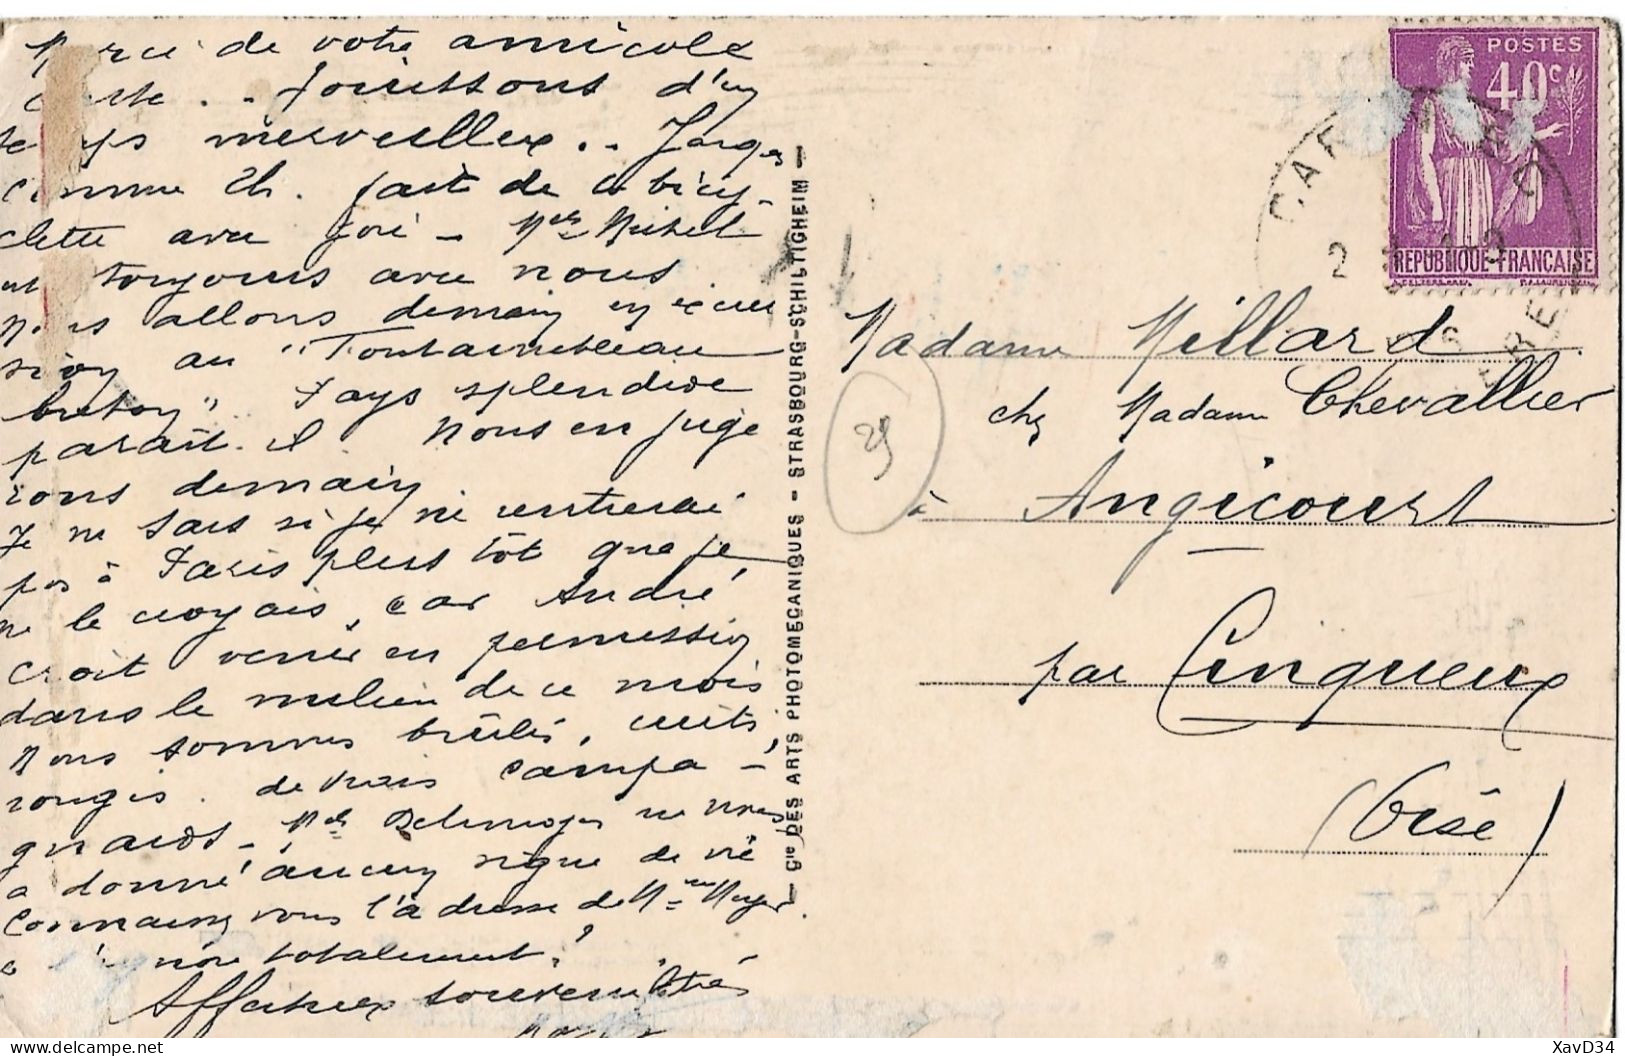 Merci de votre amicale
carte .. jouissons d'un
temps merveilleux .. Jacques
comme Ch. fait de la bicy-
clette avec joie - Mlle Michel
est toujours avec nous.
Nous allons demain en excur
sion au "Fontainebleau
breton". Pays splendide
paraît-il. Nous en juge
rons demain
Je ne sais si je ne rentrerai
pas à Paris plus tôt que je
ne le croyais, car André
croit venir en permission
dans le milieu de ce mois
Nous sommes brûlés, cuits,
rougis. de vrais campa-
gnards - Mlle ne nous
a donné aucun signe de vie
Connaissez vous l'adresse de Mme Meyer.
totalement!
Affectueux souvenirs
Cie DES ARTS PHOTOMECANIQUES - STRASBOURG-SCHILTIGHEIM -
POSTES
40c
REPUBLIQUE-FRANCAISE
CAR
2
29
Madame Millard
chez Madame Chevallier
à Angicourt
par Cinqueux
(Oise)
XavD34